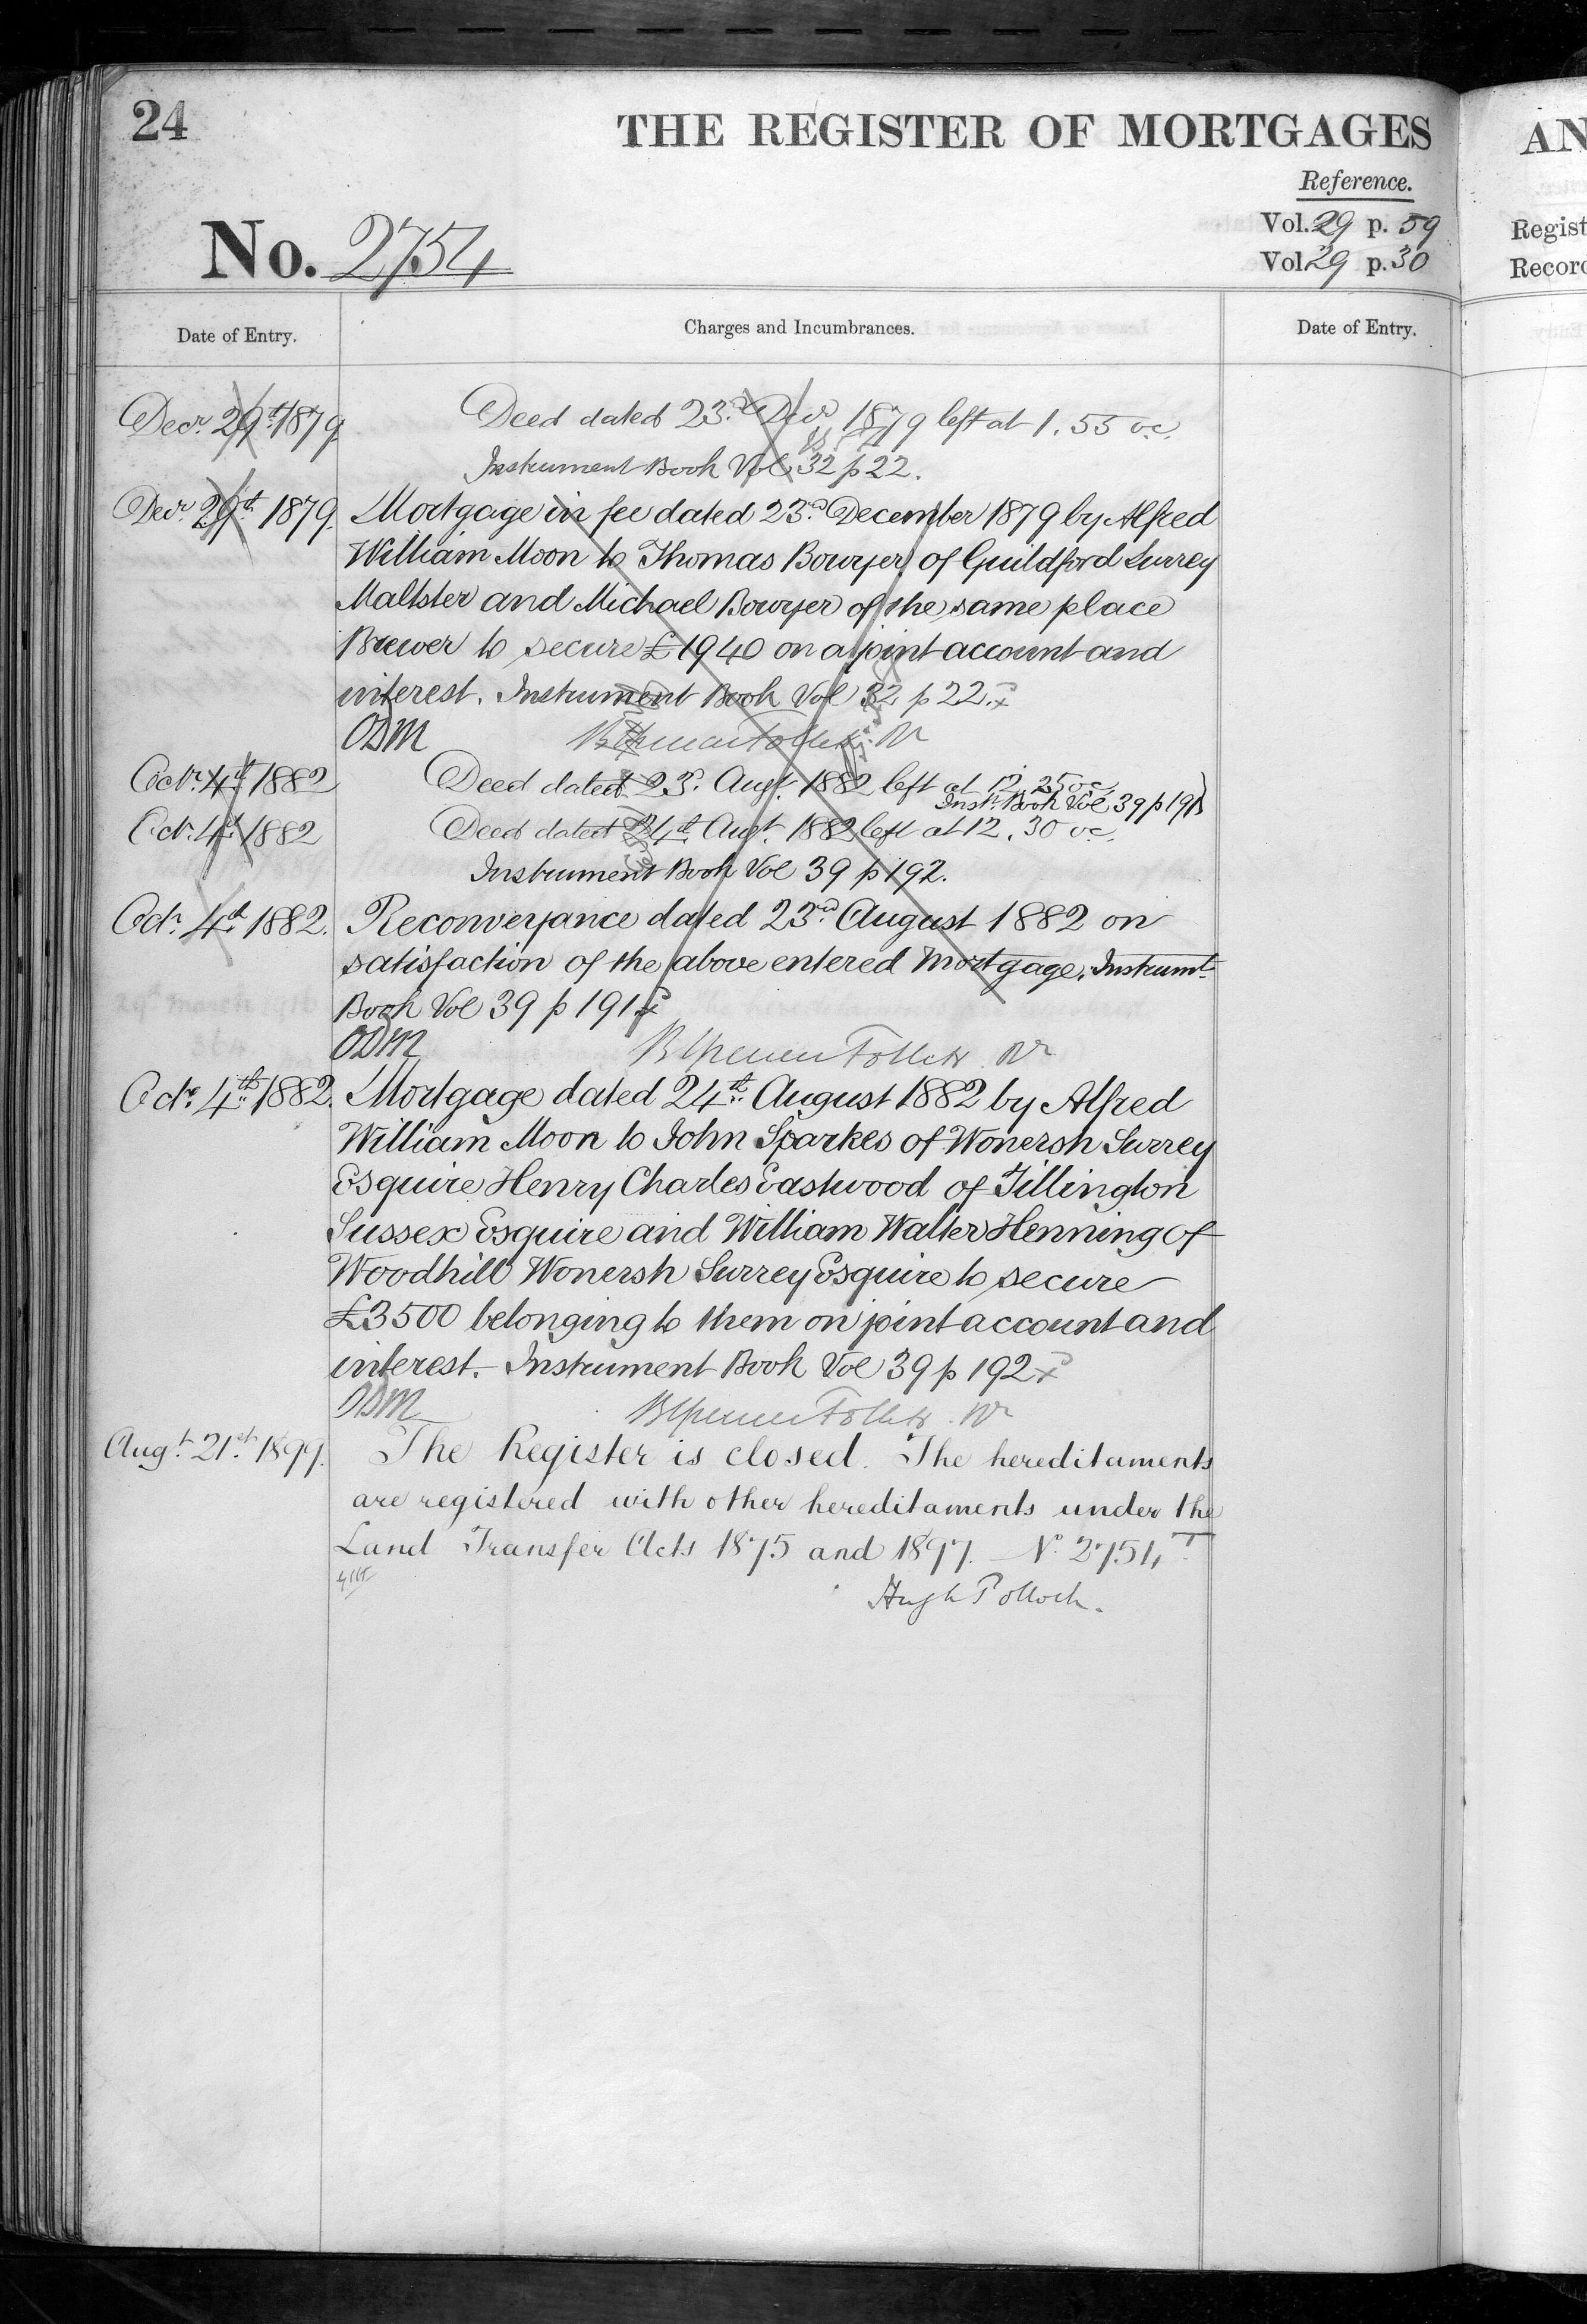 24
THE REGISTER OF MORTGAGES
AN
Reference.
Vol. 29 p. 59
Regist
No. 2754
Vol. 29 p. 30
Record
Date of Entry.
Charges and Incumbrances.
Date of Entry.
Decr. 29th 1879
Deed dated 23rd Decr 1879 left at 1.55 oc.
Instrument Book Vol 32 p 22.
Decr. 29th 1879.
Mortgage in fee dated 23rd December 1879 by Alfred
William Moon to Thomas Bowyer of Guildford Surrey
Maltster and Michael Bowyer of the same place
Brewer to secure £1940 on a joint account and
interest. Instrument Book Vol 32 p 22.
ODM
Octr. 4th 1882
Deed dated 23rd Augt. 1882 left at 12.25 oc.
Instr. Book Vol 39 p 191
Octr. 4th 1882
Deed dated 24th Augt. 1882 left at 12.30 oc.
Instrument Book Vol 39 p 192.
Octr. 4th 1882.
Reconveyance dated 23rd August 1882 on
satisfaction of the above entered Mortgage. Instrumt
Book Vol 39 p 191
ODM
Octr. 4th 1882.
Mortgage dated 24th August 1882 by Alfred
William Moon to John Sparkes of Wonersh Surrey
Esquire Henry Charles Eastwood of Tillington
Sussex Esquire and William Walter Henning of
Woodhill Wonersh Surrey Esquire to secure
£3500 belonging to them on joint account and
interest. Instrument Book Vol 39 p 192
ODM
Augt. 21st 1899.
The Register is closed. The hereditaments
are registered with other hereditaments under the
Land Transfer Acts 1875 and 1897. No. 2754T.
Hugh Pollock.